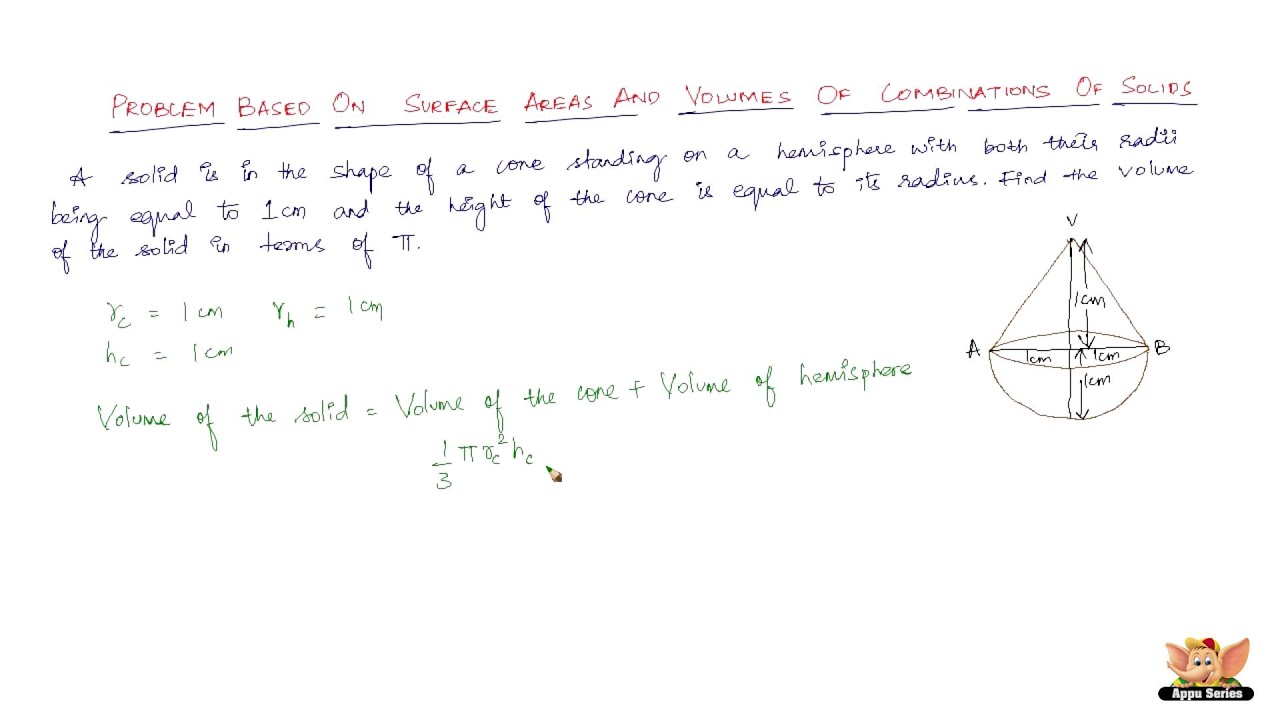 PROBLEM BASED ON SURFACE AREAS AND VOLUMES OF COMBINATIONS OF SOLIDS
A solid is in the shape of a cone standing on a hemisphere with both their radii
being equal to 1cm and the height of the cone is equal to its radius. Find the volume
of the solid in terms of π.
V
r_c = 1cm r_h = 1cm
1cm
h_c = 1cm
A 1cm 1cm B
1cm
Volume of the solid = Volume of the cone + Volume of hemisphere
1/3 π r_c² h_c
Appu Series